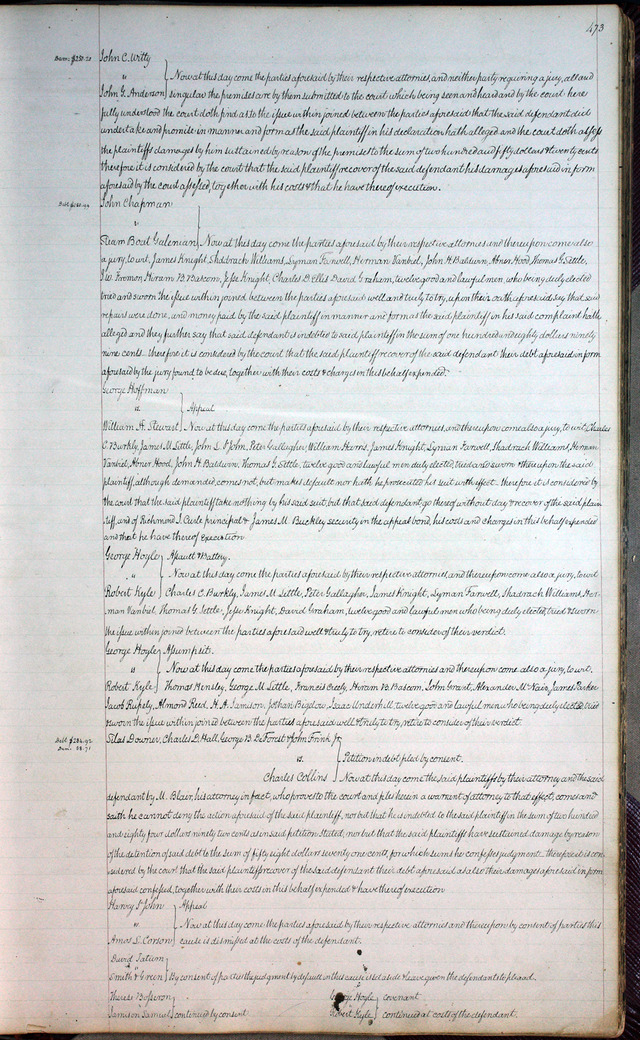 473
Dam: $250.20 John C. Witty
vs
Now at this day come the parties aforesaid by their respective attornies, and neither party requiring a jury, all and
John G. Anderson singular the premises are by them submitted to the court which being seen and heard by the court here
fully understood the court doth find as to the issue within joined between the parties aforesaid that the said defendant did
undertake and promise in manner and form as the said plaintiff in his declaration hath alleged and the court doth assess
the plaintiffs damages by him sustained by reason of the premises to the sum of two hundred and fifty dollars & twenty cents
therefore it is considered by the court that the said plaintiff recover of the said defendant his damages aforesaid in form
aforesaid by the court assessed, together with his costs & that he have thereof execution.
John Chapman
vs
Steam Boat Galenian Now at this day come the parties aforesaid by their respective attornies and thereupon come also
a jury, to wit, James Knight, Shadrach Williams, Lyman Farwell, Herman Vanbiel, John H. Baldwin, Abner Hood, Thomas G. Settle,
Fremon, Hiram B. Bascom, Jesse Knight, Charles D. Ellis David Graham, twelve good and lawful men, who being duly elected
tried and sworn the issue within joined between the parties aforesaid well and truly to try, upon their oath aforesaid say that said
repairs were done, and money paid by the said plaintiff in manner and form as the said plaintiff in his said complaint hath
alleged and they further say that said defendant is indebted to said plaintiff in the sum of one hundred and eighty dollars ninety
nine cents. therefore it is considered by the court that the said plaintiff recover of the said defendant their debt aforesaid in form
aforesaid by the jury found to be due, together with their costs & charges in this behalf expended.
George Hoffman
vs. Appeal
William A. Stewart Now at this day come the parties aforesaid by their respective attornies, and thereupon come also a jury, to wit Charles
C. Burkly, James M. Little, John L. St John, Peter Gallagher, William Harris, James Knight, Lyman Farwell, Shadrach Williams, Herman
Vanbiel, Abner Hood, John H. Baldwin, Thomas G. Settle, twelve good and lawful men duly elected, tried and sworn & thereupon the said
plaintiff, although demanded, comes not, but makes default nor hath he prosecuted his suit with effect. therefore it is considered by
the court that the said plaintiff take nothing by his said suit, but that said defendant go thereof without day & recover of the said plain
tiff, and of Richmond J. Curle principal & James M. Buckley security in the appeal bond, his costs and charges in this behalf expended
and that he have thereof Execution
George Hoyle Assault & Battery.
vs Now at this day come the parties aforesaid by their respective attornies and thereupon come also a jury, to wit
Robert Kyle Charles C. Burkly, James M. Little, Peter Gallagher, James Knight, Lyman Farwell, Shadrach Williams Her-
man Vanbiel, Thomas G. Settle, Jesse Knight, David Graham, twelve good and lawful men who being duly elected, tried & sworn
the issue within joined between the parties aforesaid well & truly to try, retire to consider of their verdict.
George Hoyle Assumpsit.
vs Now at this day come the parties aforesaid by their respective attornies and thereupon come also a jury, to wit.
Robert Kyle Thomas Hensley, George M. Little, Francis Creely, Hiram B. Bascom, John Grant, Alexander McNair, James Parker
Jacob Rupely, Almond Reed, H. A. Jamison, Jothan Bigelow, Isaac Underhill, twelve good and lawful men who being duly elected, tried
& sworn the issue within joined between the parties aforesaid well & truly to try, retire to consider of their verdict
Debt $284.92 Silas Downer, Charles D. Hall, George B. DeForest & John Frink Jr
Dam: 58.71 vs. Petition in debt filed by consent.
Charles Collins Now at this day come the said plaintiffs by their attorney and the said
defendant by M. Blair, his attorney in fact, who proves to the court and files herein a warrant of attorney to that effect, comes and
saith he cannot deny the action aforesaid of the said plaintiff, nor but that he is indebted to the said plaintiff in the sum of two hundred
and eighty four dollars ninety two cents as in said petition stated, nor but that the said plaintiffs have sustained damage by reason
of the detention of said debt to the sum of fifty eight dollars seventy one cents, for which sums he confesses judgment. Therefore it is con
sidered by the court that the said plaintiffs recover of the said defendant their debt aforesaid as also their damages aforesaid in form
aforesaid confessed, together with their costs in this behalf expended & have thereof execution
Harry St John Appeal
vs Now at this day come the parties aforesaid by their respective attornies and thereupon by consent of parties this
Amos L. Corson cause is dismissed at the costs of the defendant.
David Tatum
vs
Smith & Green By consent of parties the judgment by default in this cause is set aside & leave given the defendants to plead.
Therese Bosseron George Hoyle covenant
Jamison Samuel continued by consent Robert Kyle continued at costs of the defendant.